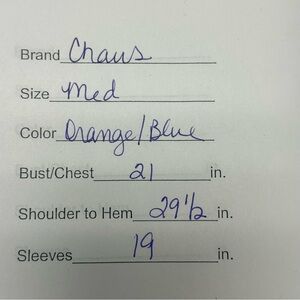 Brand Chaus
Size Med
Color Orange/Blue
Bust/Chest 21 in.
Shoulder to Hem 29 1/2 in.
Sleeves 19 in.